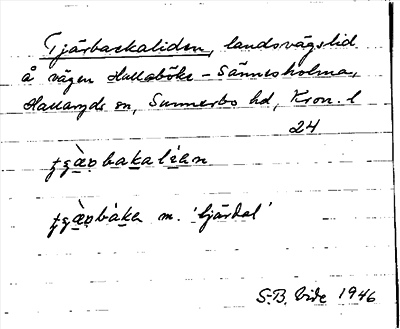 Tjärbackaliden, landsvägslid
å vägen Hallaböke - Sännesholma,
Hallaryds sn, Sunnerbo hd, Kron. l
24
m. 'tjärdal'
S.-B. Vide 1946